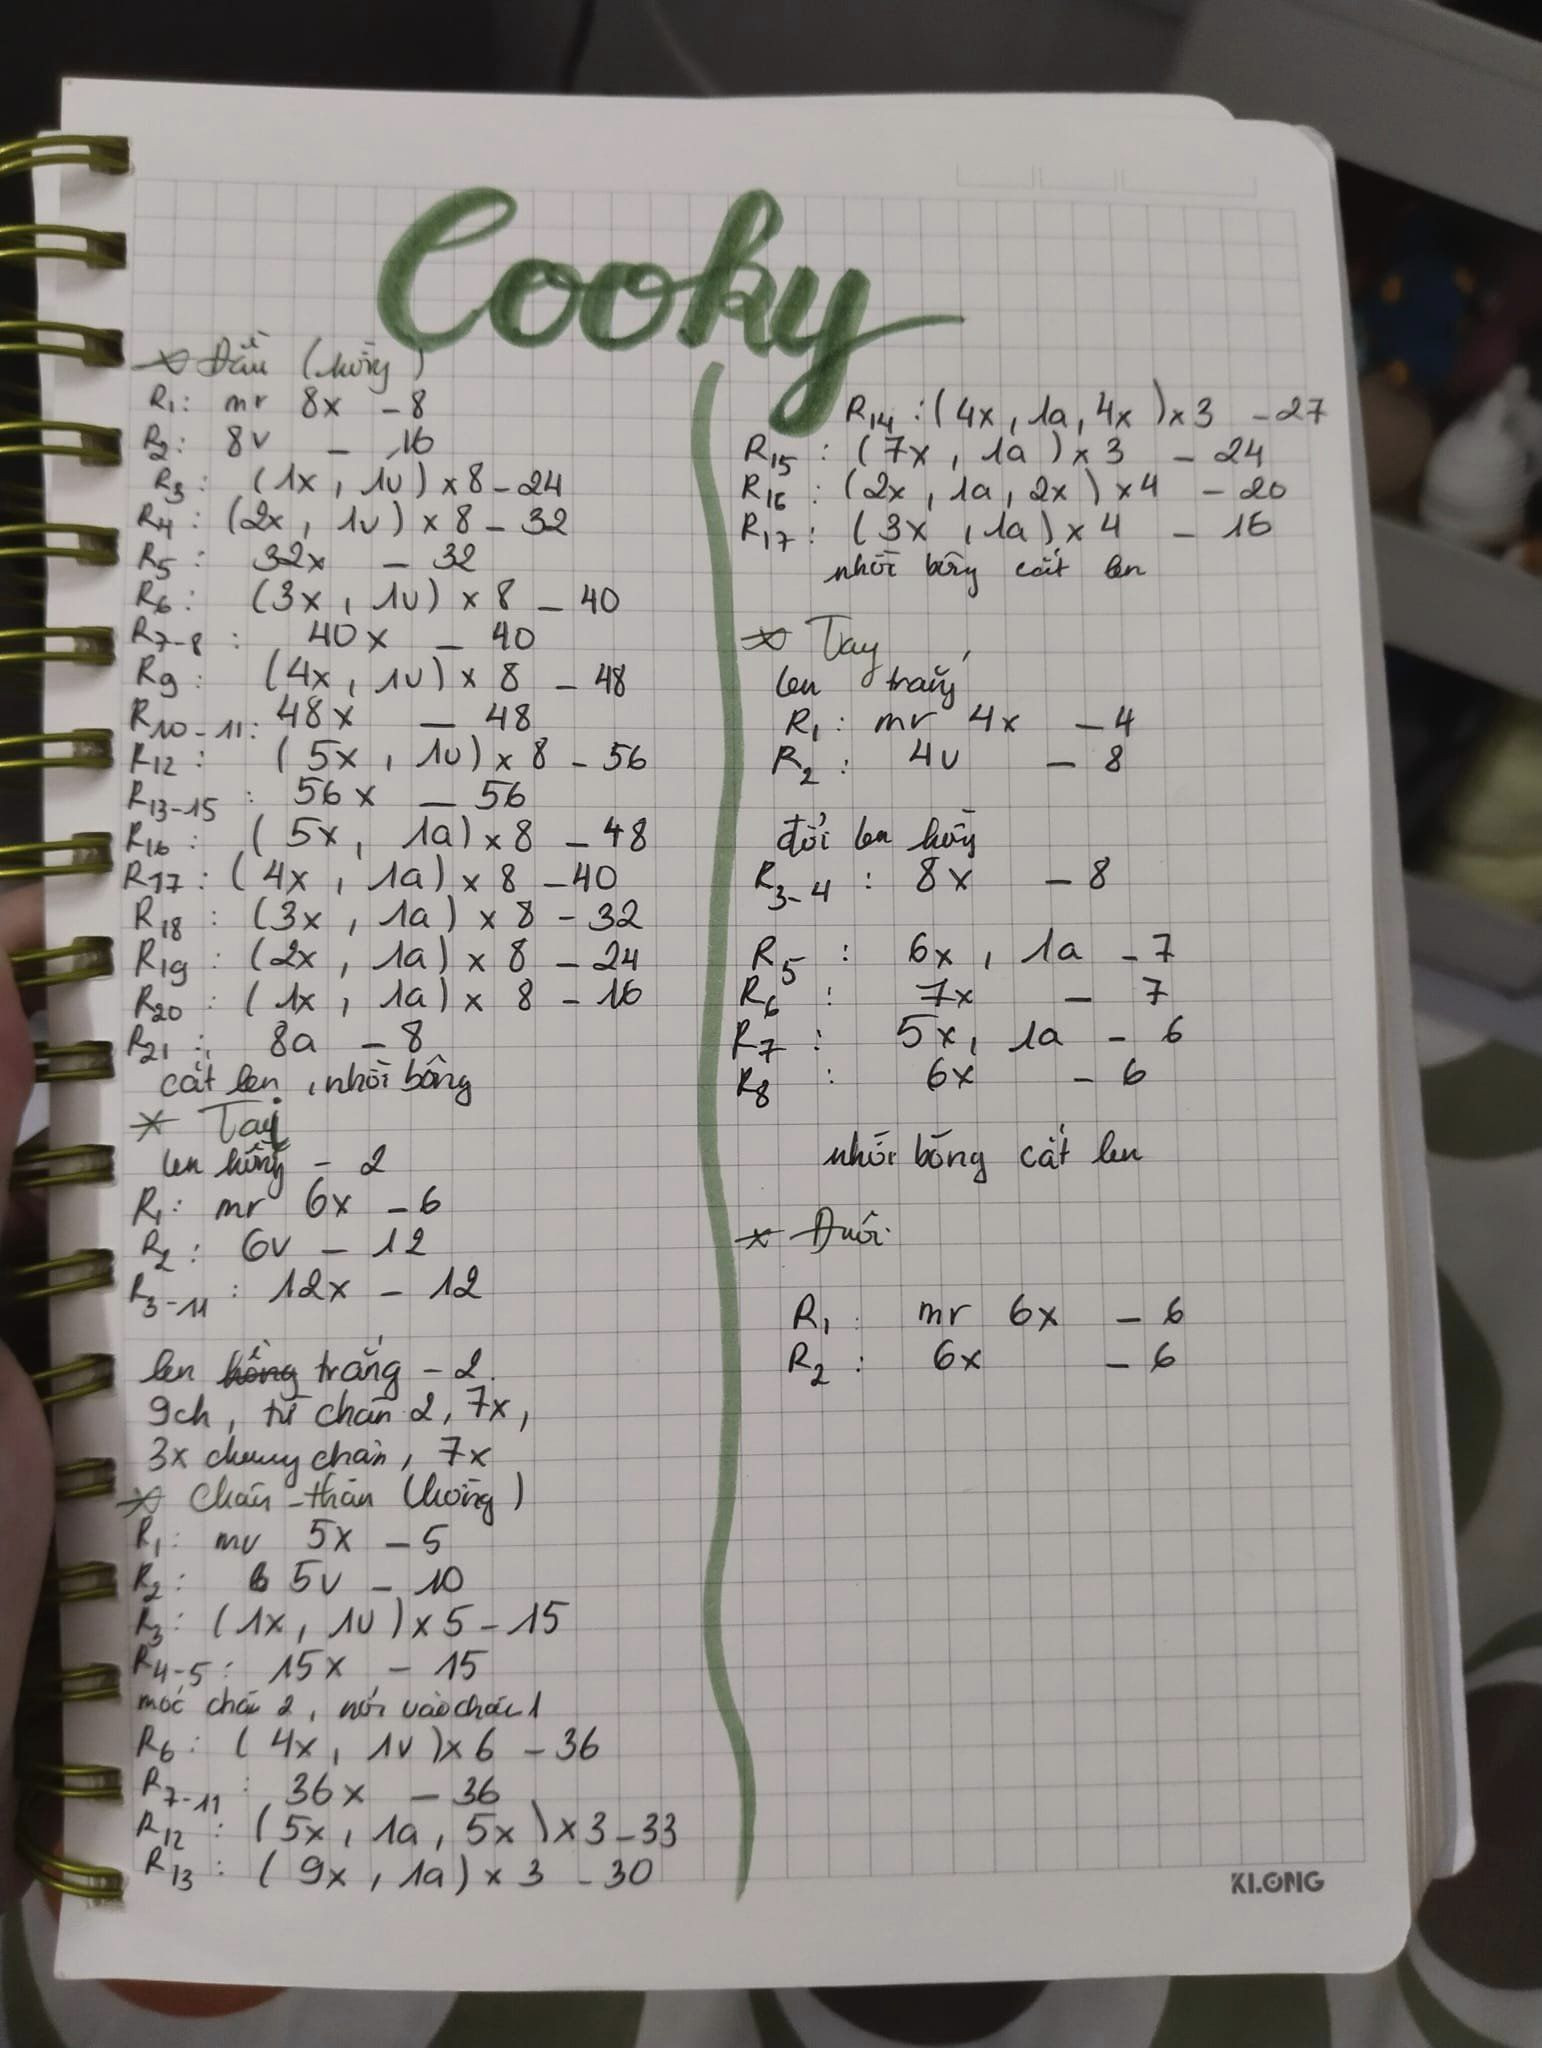 Cooky
* Đầu (hồng)
R1: mr 8x - 8
R2: 8v - 16
R3: (1x, 1v) x 8 - 24
R4: (2x, 1v) x 8 - 32
R5: 32x - 32
R6: (3x, 1v) x 8 - 40
R7-8: 40x - 40
R9: (4x, 1v) x 8 - 48
R10-11: 48x - 48
R12: (5x, 1v) x 8 - 56
R13-15: 56x - 56
R16: (5x, 1a) x 8 - 48
R17: (4x, 1a) x 8 - 40
R18: (3x, 1a) x 8 - 32
R19: (2x, 1a) x 8 - 24
R20: (1x, 1a) x 8 - 16
R21: 8a - 8
cắt len, nhồi bông
* Tai
len hồng - 2
R1: mr 6x - 6
R2: 6v - 12
R3-11: 12x - 12
len hồng trắng - 2.
9ch, từ chân 2, 7x,
3x chung chân, 7x
* Chân - thân (hồng)
R1: mr 5x - 5
R2: 5v - 10
R3: (1x, 1v) x 5 - 15
R4-5: 15x - 15
móc chân 2, nối vào chân 1
R6: (4x, 1v) x 6 - 36
R7-11: 36x - 36
R12: (5x, 1a, 5x) x 3 - 33
R13: (9x, 1a) x 3 - 30
R14: (4x, 1a, 4x) x 3 - 27
R15: (7x, 1a) x 3 - 24
R16: (2x, 1a, 2x) x 4 - 20
R17: (3x, 1a) x 4 - 16
nhồi bông cắt len
* Tay
len trắng
R1: mr 4x - 4
R2: 4v - 8
đổi len hồng
R3-4: 8x - 8
R5: 6x, 1a - 7
R6: 7x - 7
R7: 5x, 1a - 6
R8: 6x - 6
nhồi bông cắt len
* Đuôi
R1: mr 6x - 6
R2: 6x - 6
KLONG